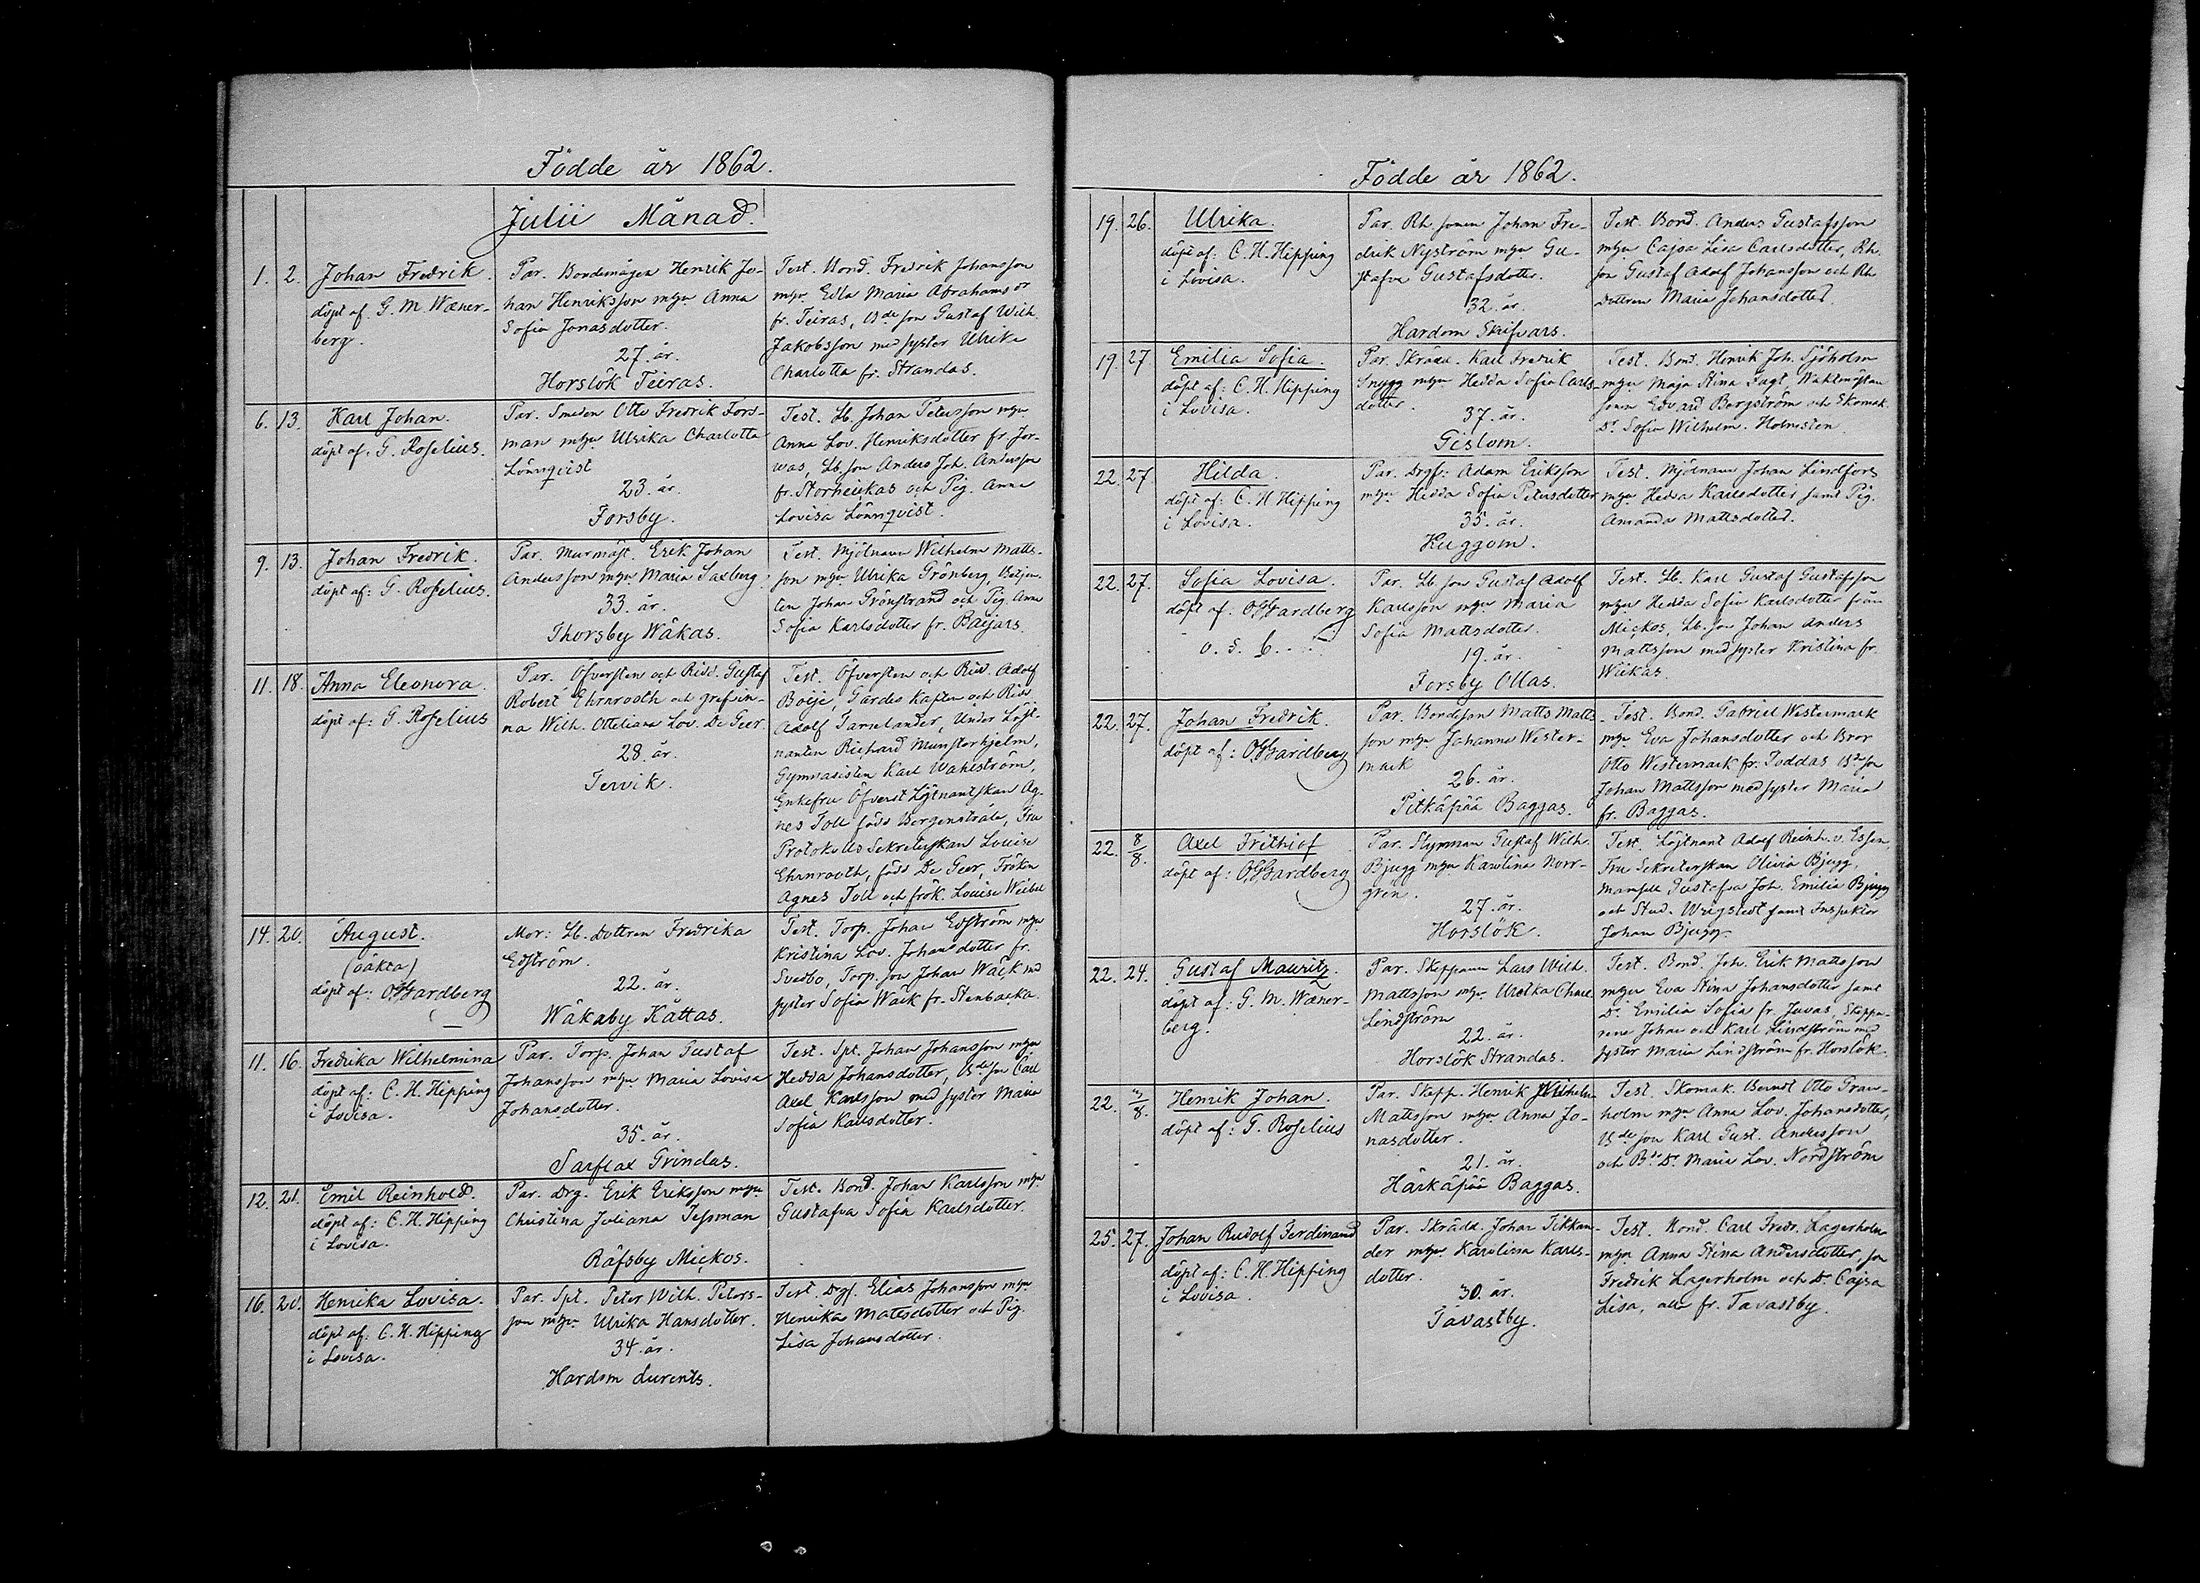 Födde år 1862.
Julii Månad.
1. 2. Johan Fredrik.
döpt af. G. M. Wæner-
berg.
Par. Bondemågen Henrik Jo-
han Henriksson m hu Anna
Sofia Jonasdotter.
27. år.
Horslök Teiras.
Test. Bond. Fredrik Johansson
Edla Maria Abrahams dr
fr. Teiras, Bde son Gustaf Wilh.
Jakobsson med syster Ulrika
Charlotta fr. Strandas.
6. 13. Karl Johan.
döpt af: G. Roselius.
Par. Smeden Otto Fredrik Fors-
man Ulrika Charlotta
Lönnqvist
23. år.
Forsby.
Test. Lb. Johan Petersson
Anna Lov. Henriksdotter fr. Jor-
was, Lb. son Anders Joh. Andersson
fr. Storheikas och Pig. Anna
Lovisa Lönnqvist.
9. 13. Johan Fredrik.
döpt af: G. Roselius.
Par. Murmäst. Erik Johan
Andersson Maria Saxberg.
33. år.
Thorsby Wåkas.
Test. Mjölnaren Wilhelm Matts-
son Ulrika Grönberg, Betjen-
ten Johan Grönstrand och Pig. Anna
Sofia Karlsdotter fr. Baijars.
11. 18. Anna Eleonora.
döpt af: G. Roselius
Par. Öfversten och Ridd. Gustaf
Robert Ehrnrooth och grefvin-
na Wilh. Otteliana Lov. De Geer
28. år.
Tervik.
Test. Öfversten och Ridd. Adolf
Boije, Gardes Kapten och Ridd
Adolf Tarnelander, Under Löjt-
nanten Richard Munsterhjelm,
Gymnasisten Karl Wahlström,
Enkefru Öfverst Löjtnantskan Ag-
nes Toll född Bergenstråle, Fru
Protokolls Sekreterskan Louise
Ehrnrooth, född De Geer, Fröken
Agnes Toll och frök. Louise Weibel
14. 20. August.
(oäkta)
döpt af: O. Gardberg
Mor: Lb. Dottren Fredrika
Edström.
22. år.
Wåkaby Kättas.
Test. Torp. Johan Edström
Kristina Lov. Johansdotter fr.
Svedbo, Torp. son Johan Wäck
syster Sofia Wäck fr. Stenbacka.
11. 16. Fredrika Wilhelmina
döpt af: C. H. Hipping
i Lovisa.
Par. Torp. Johan Gustaf
Johansson Maria Lovisa
Johansdotter.
35. år.
Sarflax Grindas.
Test. Spt. Johan Johansson
Hedda Johansdotter, Bde son Carl
Axel Karlsson med syster Maria
Sofia Karlsdotter.
12. 21. Emil Reinhold.
döpt af: C. H. Hipping
i Lovisa.
Par. Drg. Erik Eriksson
Christina Juliana Tessman
Räfsby Mickos.
Test. Bond. Johan Karlsson
Gustafva Sofia Karlsdotter.
16. 20. Henrika Lovisa.
döpt af: C. H. Hipping
i Lovisa.
Par. Spt. Peter Wilh. Peters-
son Ulrika Hansdotter.
34. år.
Hardom Lurents.
Test. Drg. Elias Johansson
Henrika Mattsdotter och Pig.
Lisa Johansdotter.
Födde år 1862.
19. 26. Ulrika.
döpt af: C. H. Hipping
i Lovisa.
Par. Rh. sonen Johan Fre-
drik Nyström Gu-
stafva Gustafsdotter.
32. år.
Hardom Skifvars.
Test. Bond. Anders Gustafsson
Cajsa Lisa Carlsdotter, Rh.
son Gustaf Adolf Johansson och Rh.
dottren Maria Johansdotter.
19. 27 Emilia Sofia.
döpt af: C. H. Hipping
i Lovisa.
Par. Skrädd. Karl Fredrik
Snygg Hedda Sofia Carls-
dotter.
37. år.
Gislom.
Test. Bond. Henrik Joh. Sjöholm
Maja Stina Fagt, Waktmästare
sonen Edvard Bergström och Skomak.
Dr. Sofia Wilhelm. Holmsten.
22. 27 Hilda.
döpt af: C. H. Hipping
i Lovisa.
Par. Drgf. Adam Eriksson
Hedda Sofia Petersdotter
35. år.
Kuggom.
Test. Mjölnaren Johan Lindfors
Hedda Karlsdotter, samt Pig.
Amanda Mattsdotter.
22. 27. Sofia Lovisa.
döpt af: O. Gardberg
o. s. b.
Par. Lb. son Gustaf Adolf
Karlsson Maria
Sofia Mattsdotter.
19. år.
Forsby Ollas.
Test. Lb. Karl Gustaf Gustafsson
Hedda Sofia Karlsdotter från
Mickos, Lb. son Johan Anders
Mattsson med syster Kristina fr.
Wäkas.
22. 27. Johan Fredrik.
döpt af: O. Gardberg
Par. Bondeson Matts Matts-
son Johanna Wester-
mark
26. år.
Pitkäpää Baggas.
Test. Bond. Gabriel Westermark
Eva Johansdotter och Bror
Otto Westermark fr. Toddas Bde son
Johan Mattsson med syster Maria
fr. Baggas.
22. 8/8. Axel Frithiof
döpt af: O. Gardberg
Par. Styrman Gustaf Wilh.
Bjugg Karolina Norr-
gren.
27. år.
Horslök.
Test. Löjtnant Adolf Reinh. v. Essen,
Fru Sekreterskan Olivia Bjugg,
Mamsell Gustafva Joh. Emilia Bjugg
och Stud. Wrigstedt samt Inspektor
Johan Bjugg.
22. 24. Gustaf Mauritz.
döpt af: G. M. Wæner-
berg.
Par. Skepparen Lars Wilh.
Mattsson Ulrika Charl.
Lindström
22. år.
Horslök Strandas.
Test. Bond. Joh. Erik Mattsson
Eva Stina Johansdotter samt
Dr. Emilia Sofia fr. Juvas, Skeppa-
rene Johan och Karl Lindström med
syster Maria Lindström fr. Horslök.
22. 3/8. Henrik Johan.
döpt af: G. Roselius
Par. Skepp. Henrik Wilhelm
Mattsson Anna Jo-
nasdotter.
21. år.
Härkäpää Baggas.
Test. Skomak. Berndt Otto Gran-
holm Anna Lov. Johansdotter,
Bde son Karl Gust. Andersson
och Bde Dr. Maria Lov. Nordström
25. 27. Johan Rudolf Ferdinand
döpt af: C. H. Hipping
i Lovisa.
Par. Skrädd. Johan Tikkan-
der Karolina Karls-
dotter.
30. år.
Tavastby.
Test. Bond. Carl Fredr. Lagerholm
Anna Stina Andersdotter, son
Fredrik Lagerholm och Dr. Cajsa
Lisa, alla fr. Tavastby.